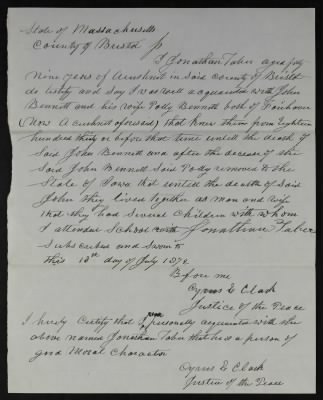 State of Massachusetts
County of Bristol ss
I Jonathan Taber aged fifty
Nine years of Acushnet in said county of Bristol
do testify and say I was well aquainted with John
Bennett and his wife Polly Bennett both of Fairhaven
(Now Acushnet aforesaid) that knew them from Eighteen
hundred thirty or before that time untill the death of
Said John Bennett and after the decease of the
Said John Bennett Said Polly removed to the
State of Iowa that untill the death of said
John they lived together as man and wife
that they had Several Children with whom
I attended School with Jonathan Taber
Subscribed and Sworn to
this 18th day of July 1872
Before me
Cyrus E Clark
Justice of the Peace
I hereby Certify that I am personally aquainted with the
above named Jonathan Taber that he is a person of
good Moral Character
Cyrus E Clark
Justice of the Peace